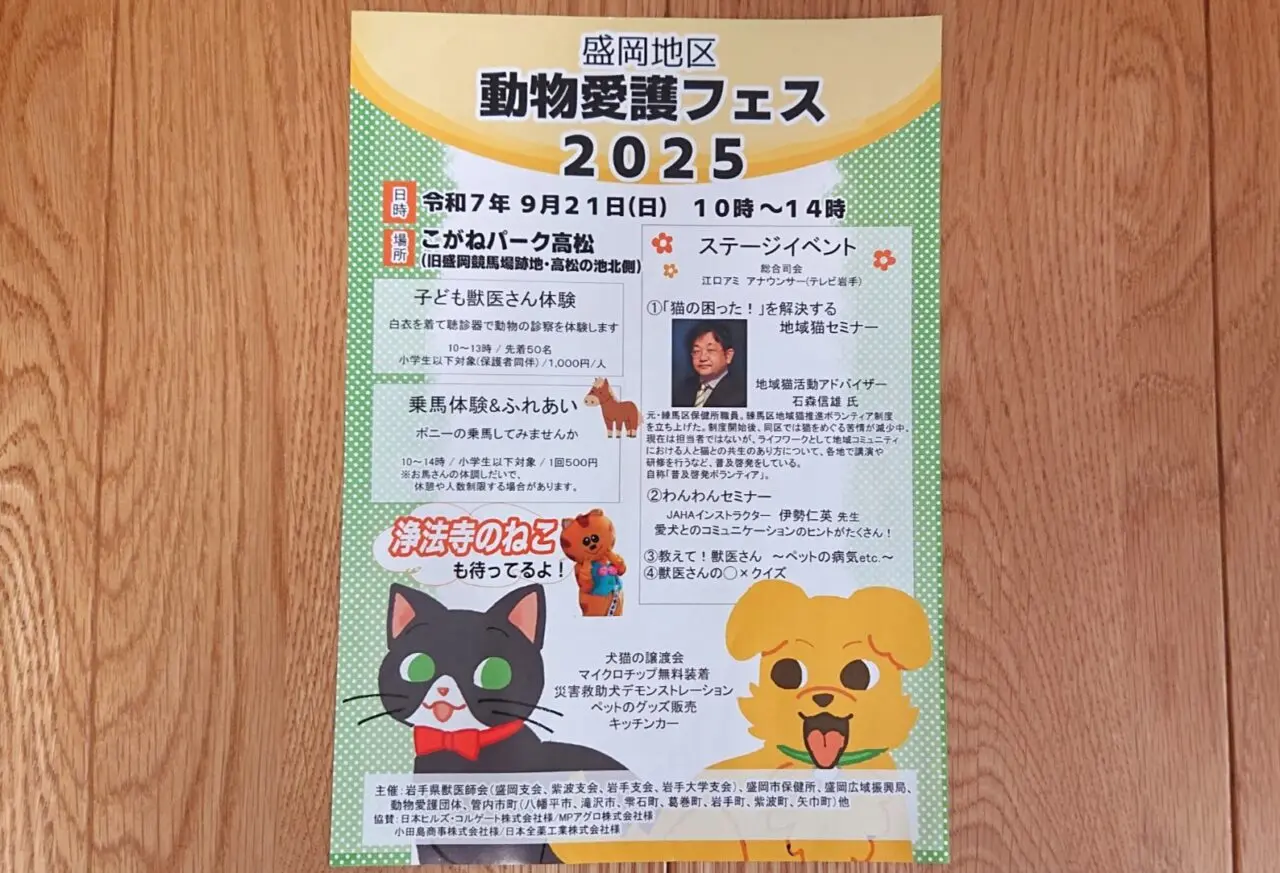 盛岡地区
動物愛護フェス
2025
日時 令和7年 9月21日(日) 10時～14時
場所 こがねパーク高松
(旧盛岡競馬場跡地・高松の池北側)
子ども獣医さん体験
白衣を着て聴診器で動物の診察を体験します
10～13時 / 先着50名
小学生以下対象(保護者同伴) /1,000円/人
乗馬体験&ふれあい
ポニーの乗馬してみませんか
10～14時 / 小学生以下対象 / 1回500円
※お馬さんの体調しだいで、
休憩や人数制限する場合があります。
浄法寺のねこ
も待ってるよ！
ステージイベント
総合司会
江口アミ アナウンサー(テレビ岩手)
①「猫の困った！」を解決する
地域猫セミナー
地域猫活動アドバイザー
石森信雄 氏
元・練馬区保健所職員。練馬区地域猫推進ボランティア制度
を立ち上げた。制度開始後、同区では猫をめぐる苦情が減少中。
現在は担当者ではないが、ライフワークとして地域コミュニティ
における人と猫との共生のあり方について、各地で講演や
研修を行うなど、普及啓発をしている。
自称「普及啓発ボランティア」。
②わんわんセミナー
JAHAインストラクター 伊勢仁英 先生
愛犬とのコミュニケーションのヒントがたくさん！
③教えて！獣医さん ～ペットの病気etc.～
④獣医さんの○×クイズ
犬猫の譲渡会
マイクロチップ無料装着
災害救助犬デモンストレーション
ペットのグッズ販売
キッチンカー
主催：岩手県獣医師会(盛岡支会、紫波支会、岩手支会、岩手大学支会)、盛岡市保健所、盛岡広域振興局、
動物愛護団体、管内市町(八幡平市、滝沢市、雫石町、葛巻町、岩手町、紫波町、矢巾町)他
協賛：日本ヒルズ・コルゲート株式会社様/MPアグロ株式会社様
小田島商事株式会社様/日本全薬工業株式会社様